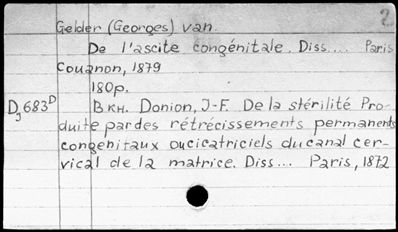 2
Gelder (Georges) van.
De l'ascite congénitale. Diss.... Paris
Couanon, 1879
180p.
Dg 683D Вкн. Donion, J-F. De la stérilité Pro-
duite par des rétrécissements permanents
congenitaux oucicatriciels ducanal cer-
vical de la matrice. Diss... Paris, 1872